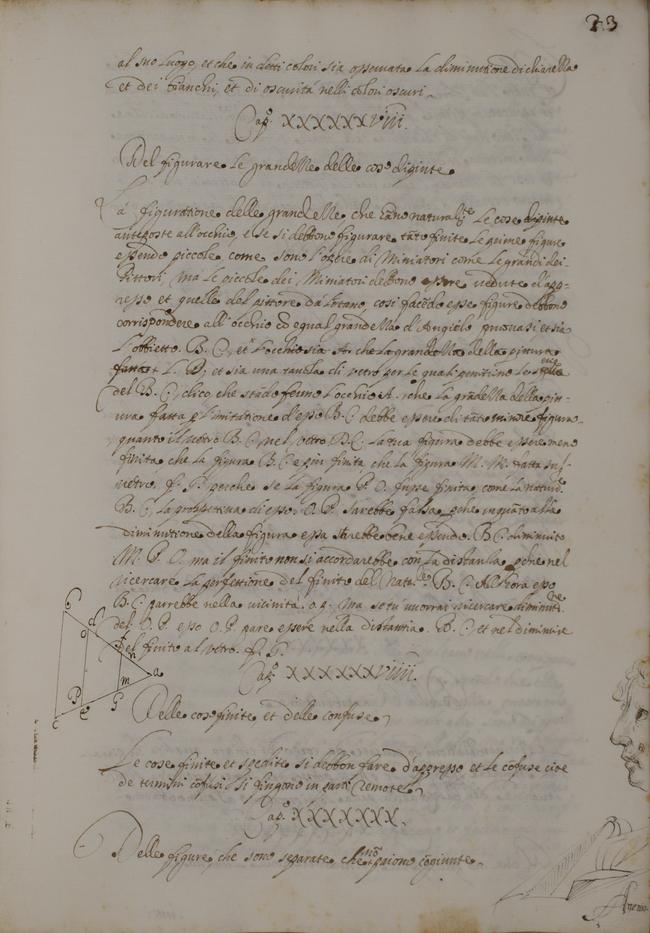 23
al suo luogo, et che in detti colori sia osseruata la diminutione di chiarezza
et dei bianchi, et di oscurità nelli colori oscuri.
Cap.º XXXXXXVIII.
Del figurare le grandezze delle cose dipinte.
La figuratione delle grandezze, che hãno naturalmte le cose dipinte
anteposte all'occhio, e se si debbono figurare tãto finite le prime figure
essendo piccole come sono l'opere di Miniatori come le grandi dei
Pittori, ma le piccole dei Miniatori debbono essere uedute d'apo
presso et quelle del pittore da lõtano, così facẽdo esse figure debbono
corrispondere all'occhio cõ egual grandezza d'Angiolo
L'obbietto. B. C, et l'occhio sia A. che la grandezza della pittura
et sia una tauola di uetro per le quali penitrino le spetie
del B. C, dico, che stãdo fermo l'occhio A. che la grãdezza della pit-
tura fatta p l'imitatione d'esso B. C debbe essere di tãto minore figura
quanto il uetro nel uetro la tua figura debbe essere meno
finita che la figura B. C. e piu finita, che la figura M. N. fatta sul
uetro. F. G. perche se la figura P. O. fusse finita, come la naturale
B. C, la prospettiua di esso. O. P. sarebbe falsa, pche inquãto alla
diminutione della figura essa starebbe bene essendo. B C diminuito
in P. O. ma il finito non si accordarebbe con la distantia, pche nel
ricercare la perfettione del finito del Naturale B. C. Allhora esso
B. C. parrebbe nella uicinità. o. p. ma se tu uorrai ricercare diminutione
del. O. P. esso O. P. pare essere nella distantia. B. C, et nel diminuire
del finito al uetro. F. G.
Cap.º XXXXXXVIIII.
Delle cose finite et delle confuse.
Le cose finite et spedite si debbon fare d'appresso et le cõfuse cioe
de termini cõfusi si fingono in parti remote.
Cap.º XXXXXXX.
Delle figure, che sono separate che nõ paiono cõgiunte.
b
d
o
f
n
a
m
P
G
e
c